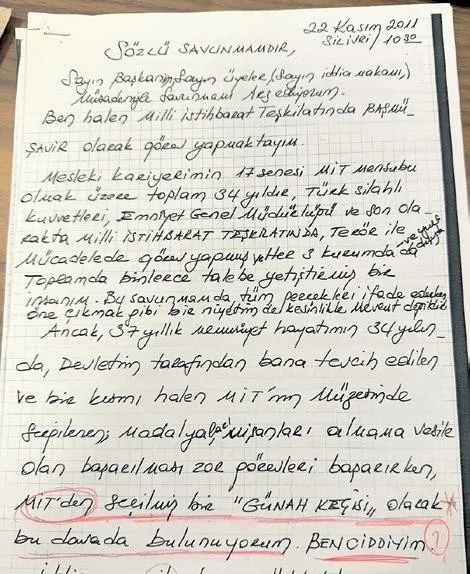 22 Kasım 2011
Silivri / 10 30
SÖZLÜ SAVUNMAMDIR,
Sayın Başkanım, Sayın üyeler, (Sayın iddia makamı,)
Müsadenizle savunmamı arz ediyorum.
Ben halen Milli istihbarat Teşkilatında BAŞMÜ-
ŞAVİR olarak görev yapmaktayım.
Mesleki kariyerimin 17 senesi MİT mensubu
olmak üzere toplam 34 yıldır, Türk silahlı
kuvvetleri, Emniyet Genel Müdürlüğü ve son ola-
rakta Milli İSTİHBARAT TEŞKİLATINDA, Terör ile
Mücadelede görev yapmış ve her 3 kurumda da
Toplamda binlerce talebe yetiştirmiş bir
insanım. Bu savunmamda, tüm gerçekleri ifade ederken
öne çıkmak gibi bir niyetim de kesinlikle mevcut değildir.
Ancak, 37 yıllık memuriyet hayatımın 34 yılın-
da, Devletim tarafından bana tevcih edilen
ve bir kısmı halen MİT'nın Müzesinde
sergilenen; Madalya, nişanları almama vesile
olan başarılması zor görevleri başarırken,
MİT'den seçilmiş bir "GÜNAH KEÇİSİ" olarak
bu davada bulunuyorum. BEN CİDDİYİM. ?